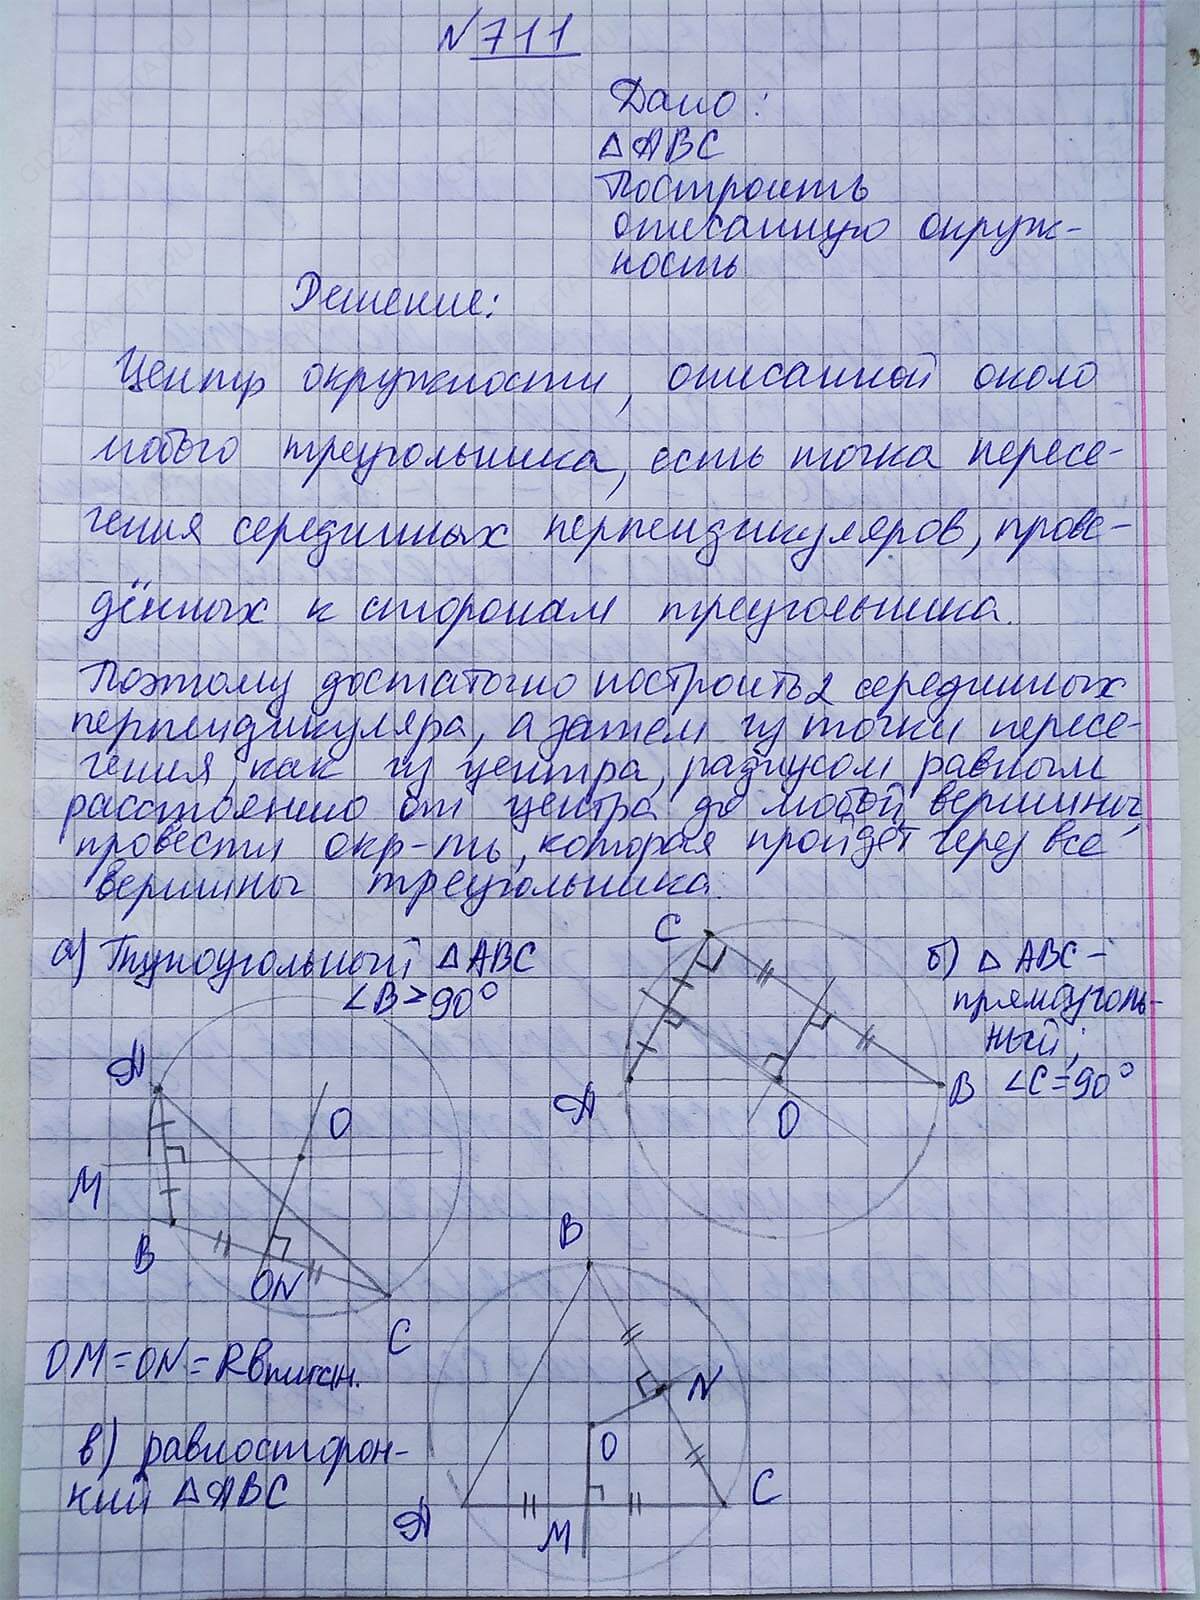 N 711
Дано:
△ABC
Построить
описанную окруж-
ность
Решение:
Центр окружности, описанной около
любого треугольника, есть точка пересе-
чения серединных перпендикуляров, прове-
дённых к сторонам треугольника.
Поэтому достаточно построить 2 серединных
перпендикуляра, а затем из точки пересе-
чения, как из центра, радиусом равным
расстоянию от центра до любой вершины,
провести окр-ть, которая пройдёт через все
вершины треугольника.
а) Тупоугольный △ABC
∠B > 90°
A
O
M
B
ON
C
C
A
O
B
б) △ ABC –
прямоуголь-
ный;
∠C = 90°
OM = ON = R впис ан.
в) равносторон-
ний △ABC
B
N
O
A
M
C